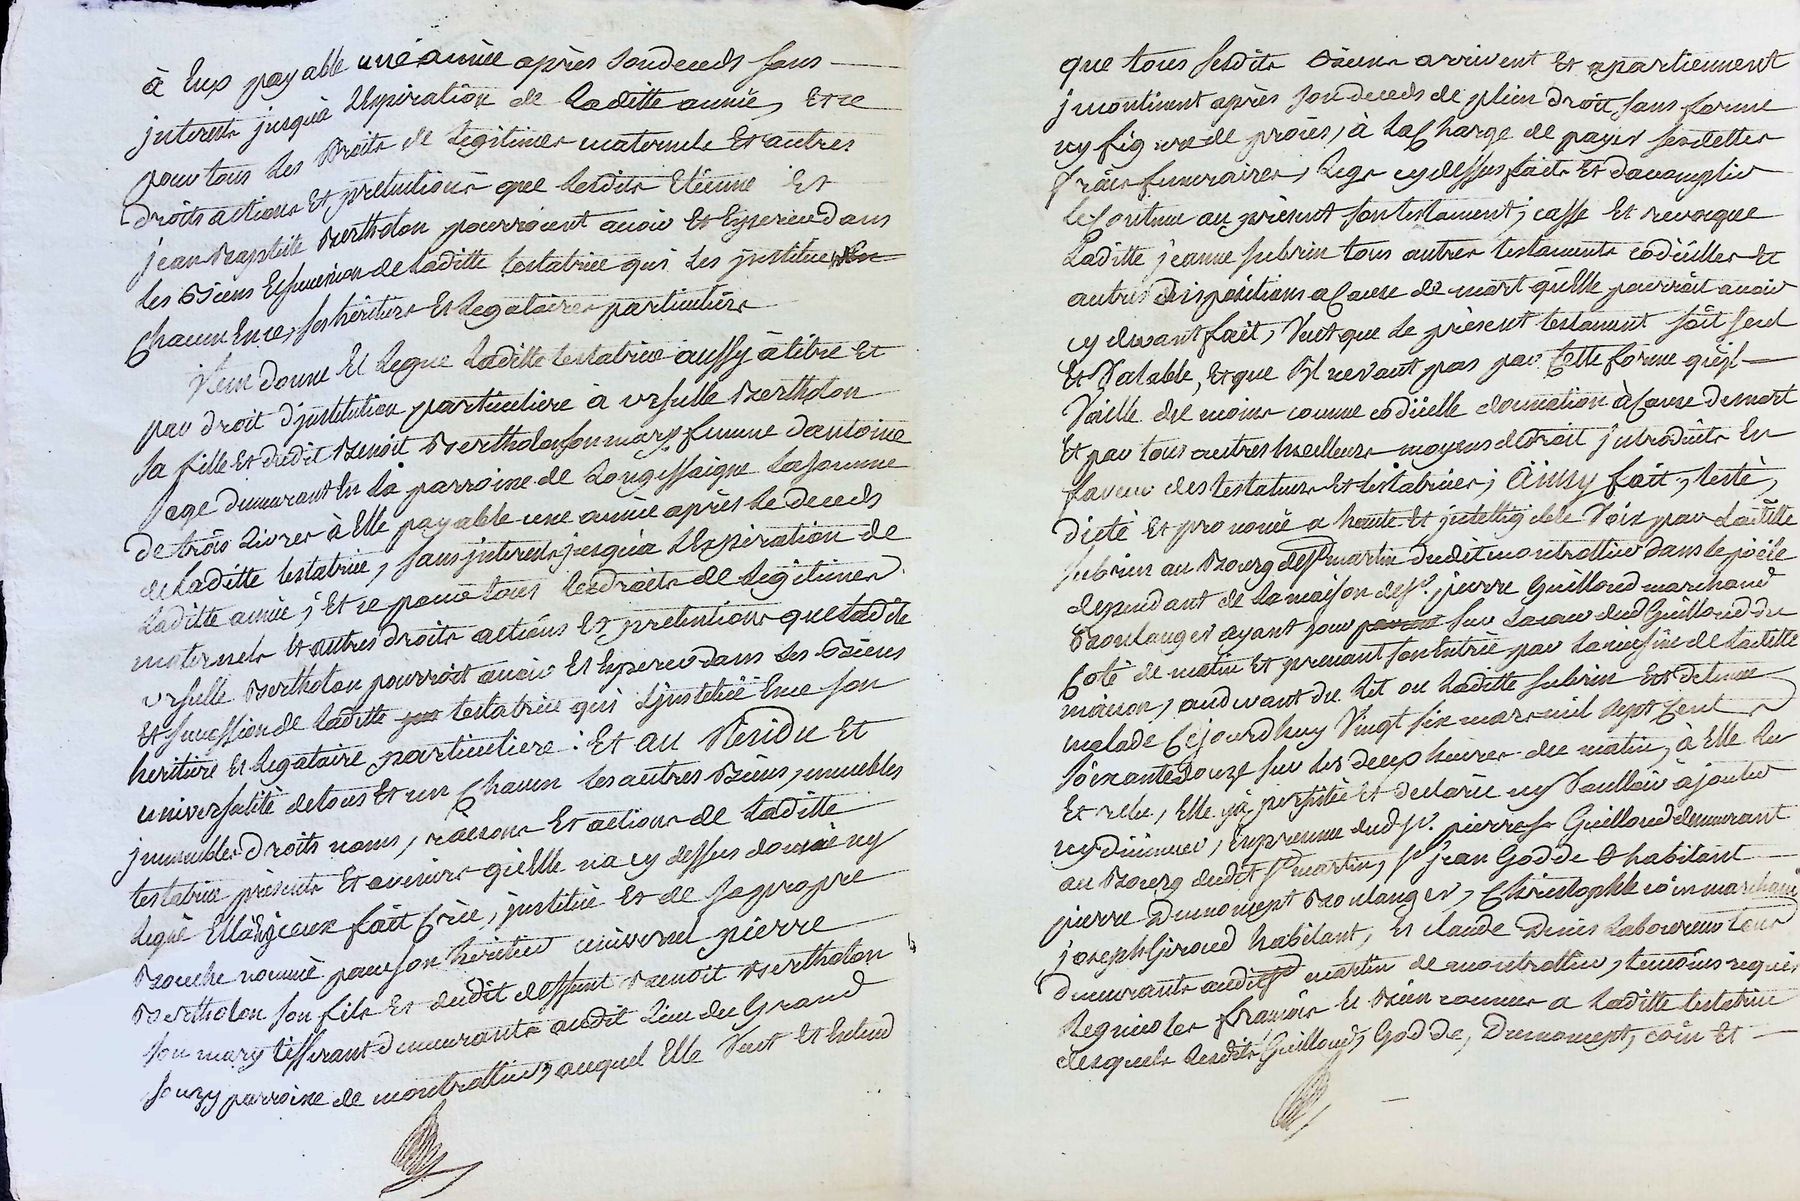 à Eux payable une année après son deceds sans
jnterests jusqu'à L'Expiration de Laditte année, Et ce
pour tous Les Droits de Legitimes maternels Et autres
droits actions Et pretentions que Lesdits Etienne Et
jean Baptiste Bertholon pourroient avoir Et Esperer dans
Les Biens Et succession de Laditte testatrice qui Les jnstitue
chacun En ce, ses héritiers Et Legataires particuliers
jtem donne Et Legue Laditte testatrice aussy à titre Et
par droit d'jnstitution particuliere à ursulle Bertholon
sa fille Et dudit Benoit Bertholon son mary femme d'antoine
page demeurant En La parroisse de Longessaigne La somme
de trois Livres à Elle payable une année après Le deceds
de Laditte testatrice, sans jnterests jusqu'a L'Expiration de
Laditte année ; Et ce pour tous Les droits de Legitimes
maternels Et autres droits actions Et pretentions que Ladite
ursulle Bertholon pourroit avoir Et Esperer dans Les Biens
Et succession de Laditte testatrice qui L'jnstitue En ce son
heritiere Et Legataire particuliere : Et au Residu Et
universalité de tous Et un Chacun Les autres Biens, meubles
jmmeubles droits noms, raisons Et actions de Laditte
testatrice présents Et avenirs qu'Elle n'a cy dessus donné ny
Legué Elle a fait Crée, jnstitué Et de sa propre
Bouche nommé pour son héritier universel pierre
Bertholon son fils Et dudit deffunt Benoit Bertholon
son mary tisserant demeurants audit Lieu du Grand
souzy parroisse de montrottier, auquel Elle Veut Et Entend
que tous sesdits Biens arrivent Et apartiennent
jncontinent après son deceds de plein droit sans forme
ny figure de procès, à La Charge de payer ses dettes
frais funeraires, Legs cy dessus faits Et d'accomplir
Le Contenu au présent son testament ; casse Et revocque
Laditte jeanne subrin tous autres testaments codicilles Et
autres dispositions a Cause de mort qu'Elle pourroit avoir
cy devant fait, Veut que Le présent testament soit seul
Et Valable, Et que s'jl ne vaut pas par Cette forme qu'jl
Vaille du moins comme codicille donnation à Cause de mort
Et par tous autres meilleurs moyens de Droit jntroduits En
faveur des testateurs Et testatrices ; Ainsy fait, testé,
dicté Et prononcé a haute Et jntelligible Voix par Laditte
subrin au Bourg de St martin dudit montrottier dans Le poële
dependant de La maison de Sr. pierre Guilloud marchand
Boulanger ayant jour sur La cour dud Guilloud du
Coté de matin Et prenant son Entrée par La cuisine de Laditte
maison, au devant du Lit ou Laditte subrin Est detenue
malade Cejourdhuy Vingt six mars mil sept Cent
soixante douze sur Les deux heures du matin, à Elle Lu
Et relu, Elle y a persisté Et declaré ny Voulloir ajouter
ny diminuer, En presence dud Sr. pierre Guilloud demeurant
au Bourg dudit St martin, Sr jean Godde habitant
pierre Dumoncept Boulanger, Christophle coin marchand
joseph Giroud habitant, Et claude Denis Laboureur tous
demeurants audit St martin de montrottier, temoins requis
Regnicoles françois Et Bien connus a Laditte testatrice
desquels Lesdits Guilloud, Godde, Dumoncept, coin Et